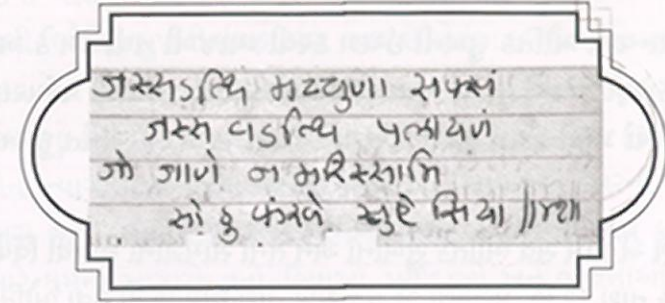 जस्सऽत्थि मच्चुणा सक्खं
जस्स वऽत्थि पलायणं
जो जाणे न मरिस्सामि
सो हु कंखे सुए सिया